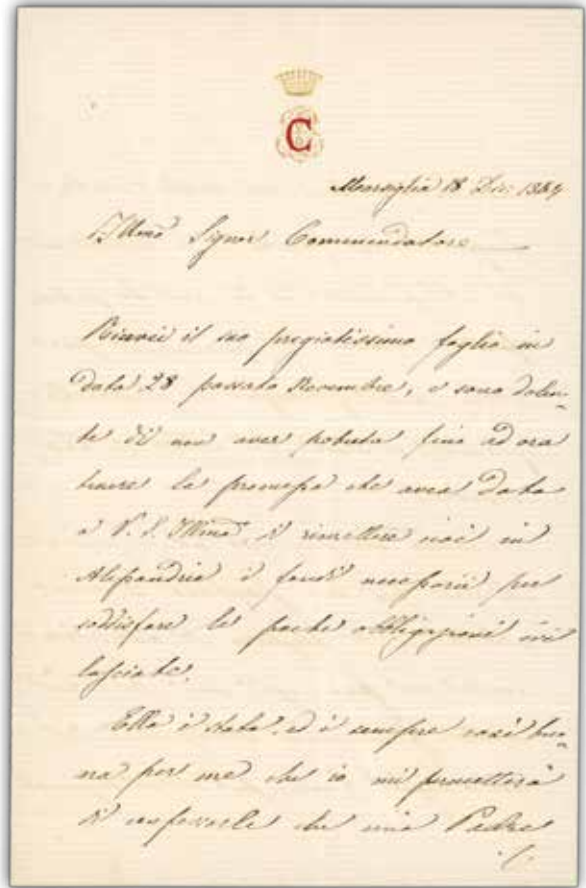 C
Marsiglia 18 Dic: 1864
Illmo Signor Commendatore
Ricevei il suo pregiatissimo foglio in
data 28 passato Novembre, e sono dolen-
te di non aver potuto fino ad ora
tenere la promessa che avea data
a V. S. Illma di rimettere cioè in
Alessandria i fondi necessarii per
soddisfare le poche obbligazioni ivi
lasciate.
Ella è stata, ed è sempre così buo-
na per me che io mi permetterò
di confessarle che mio Padre